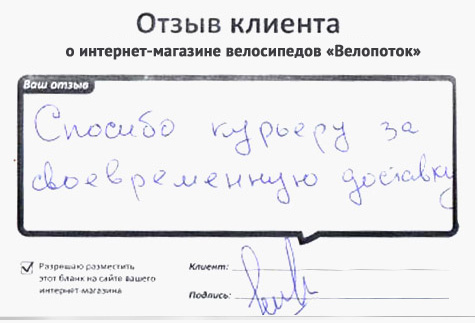 Отзыв клиента
о интернет-магазине велосипедов «Велопоток»
Ваш отзыв
Спасибо курьеру за
своевременную доставку
Разрешаю разместить
этот бланк на сайте вашего
интернет-магазина
Клиент:
Подпись: